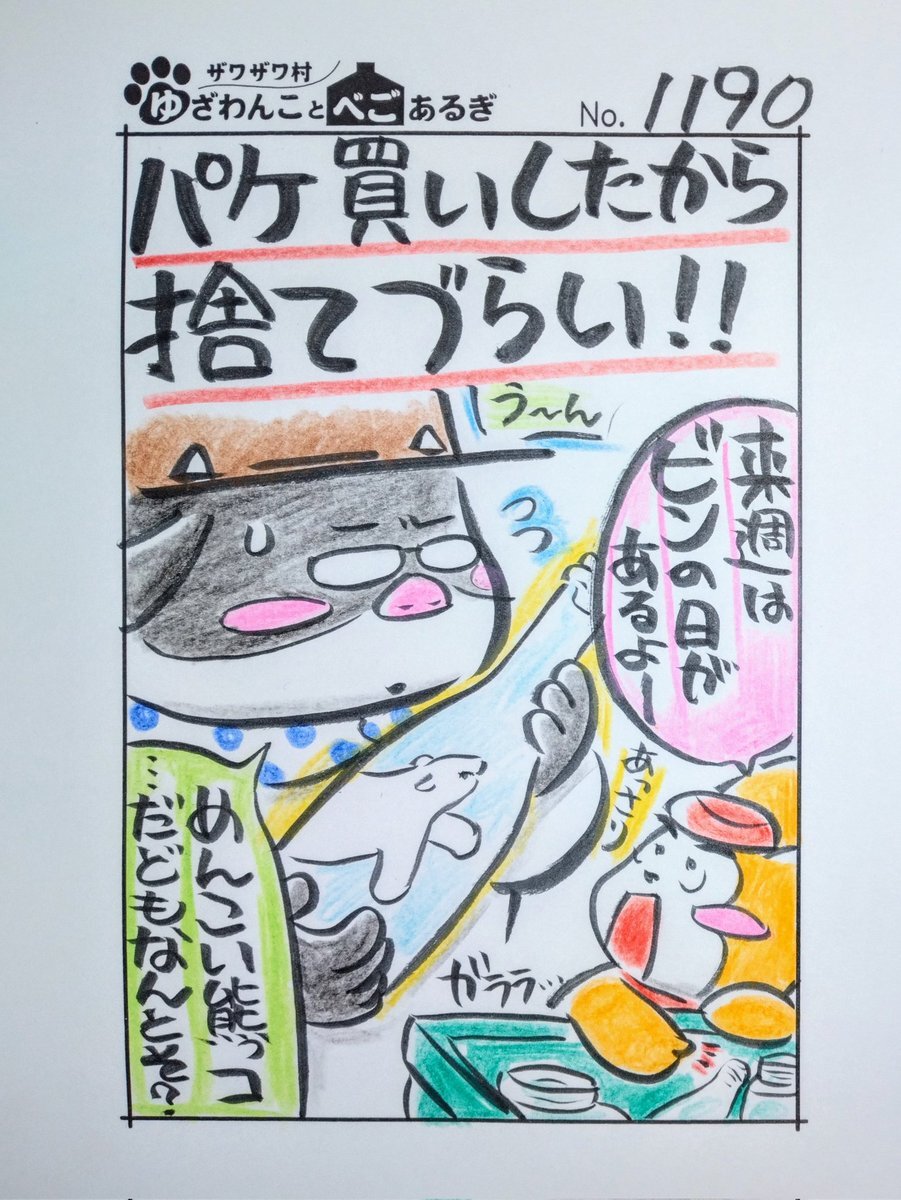 ザワザワ村
ゆざわんことべごあるぎ
No. 1190
パケ買いしたから
捨てづらい!!
う〜ん
来週は
ビンの日が
あるよー
あっさり
めんこい熊ッコ
…だどもなんとそ?
ガララッ…